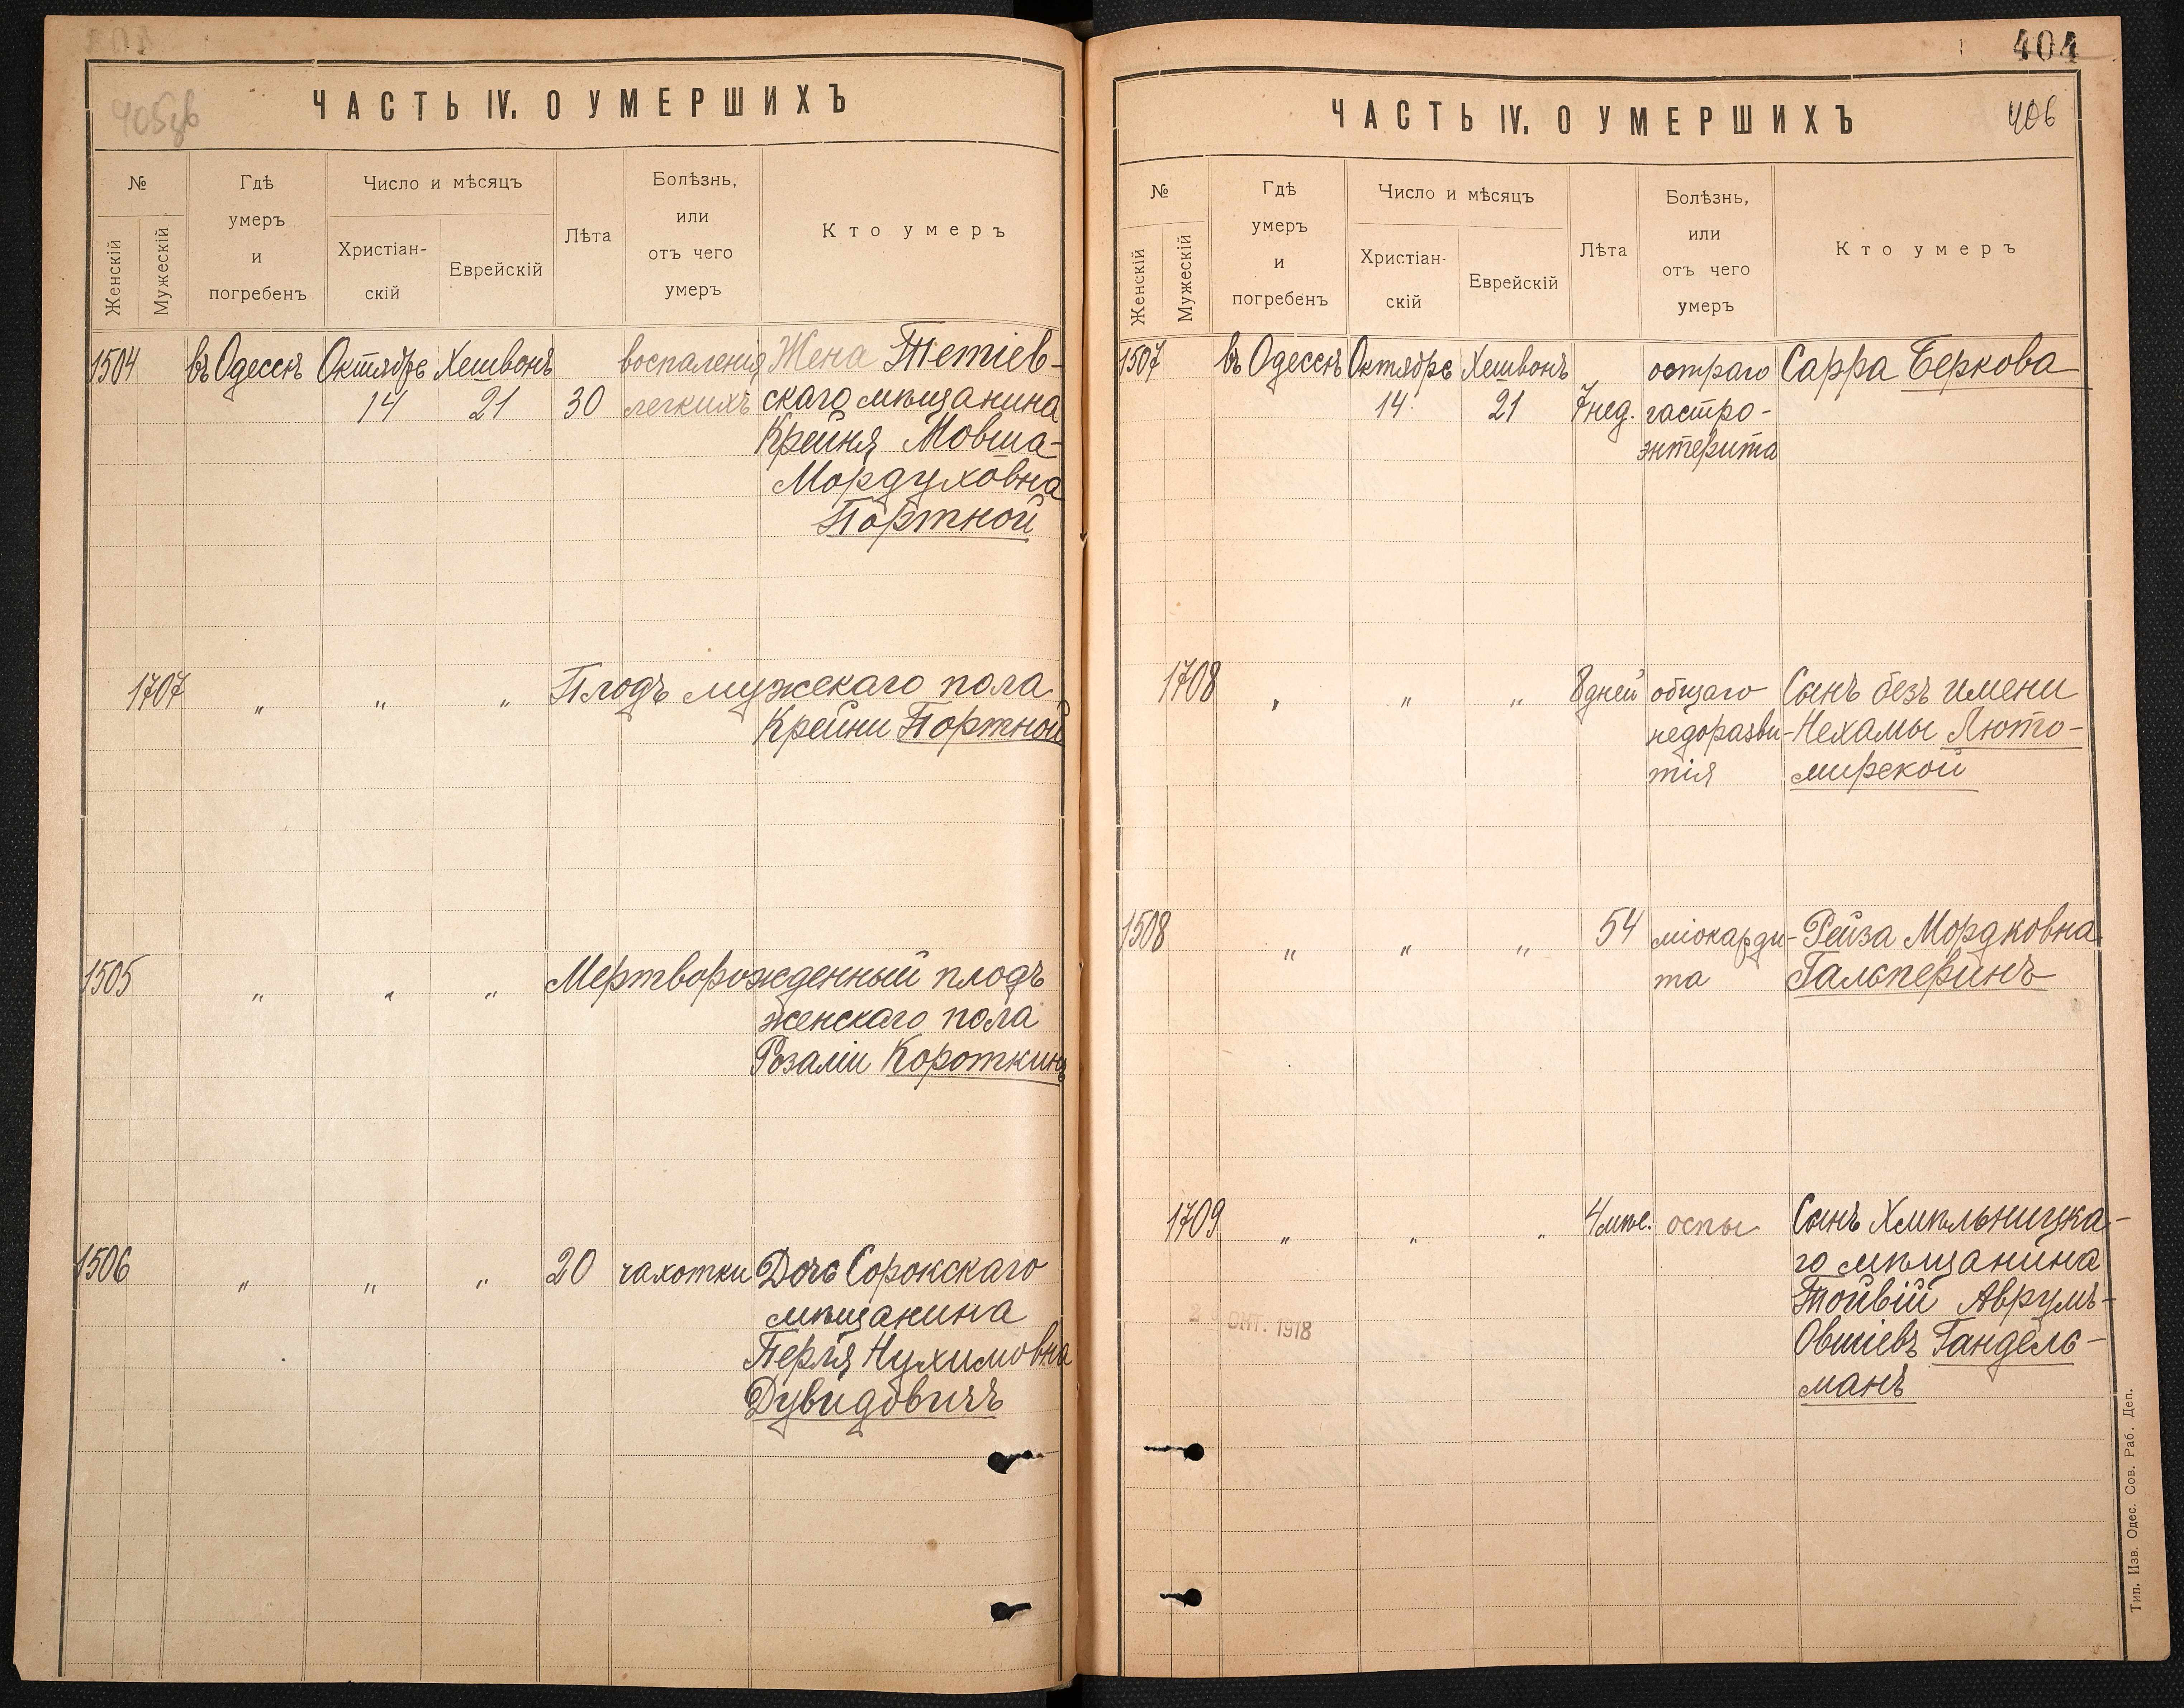 ЧАСТЬ IV. О УМЕРШИХЪ
№
Женскій
Мужескій
Гдѣ
умеръ
и
погребенъ
Число и мѣсяцъ
Христіан-
скій
Еврейскій
Лѣта
Болѣзнь,
или
отъ чего
умеръ
Кто умеръ
1504 въ Одессѣ Октября Хешвонъ воспаленія Жена Тетіев-
14 21 30 легкихъ скаго мѣщанина
Крейня Мовша-
Мордуховна
Портной
1707 " " " Плодъ мужскаго пола
Крейни Портной
1505 " " " Мертворожденный плодъ
женскаго пола
Розаліи Короткинъ
1506 " " " 20 чахотки Дочь Сорокскаго
мѣщанина
Перля Нухимовна
Дувидовичъ
404
ЧАСТЬ IV. О УМЕРШИХЪ
406
№
Женскій
Мужескій
Гдѣ
умеръ
и
погребенъ
Число и мѣсяцъ
Христіан-
скій
Еврейскій
Лѣта
Болѣзнь,
или
отъ чего
умеръ
Кто умеръ
1507 въ Одессѣ Октября Хешвонъ остраго Сарра Беркова
14 21 7 нед. гастро-
энтерита
1708 " " " 8 дней общаго Сынъ безъ имени
недоразви- Нехамы Люто-
тія мирской
1508 " " " 54 міокарди- Рейза Мордковна
та Гальперинъ
1709 " " " 4 мѣс. оспы Сынъ Хмѣльницка-
го мѣщанина
Тойвій Аврумъ-
Овшіевъ Гандель-
манъ
ОКТ. 1918
Тип. Изв. Одес. Сов. Раб. Деп.